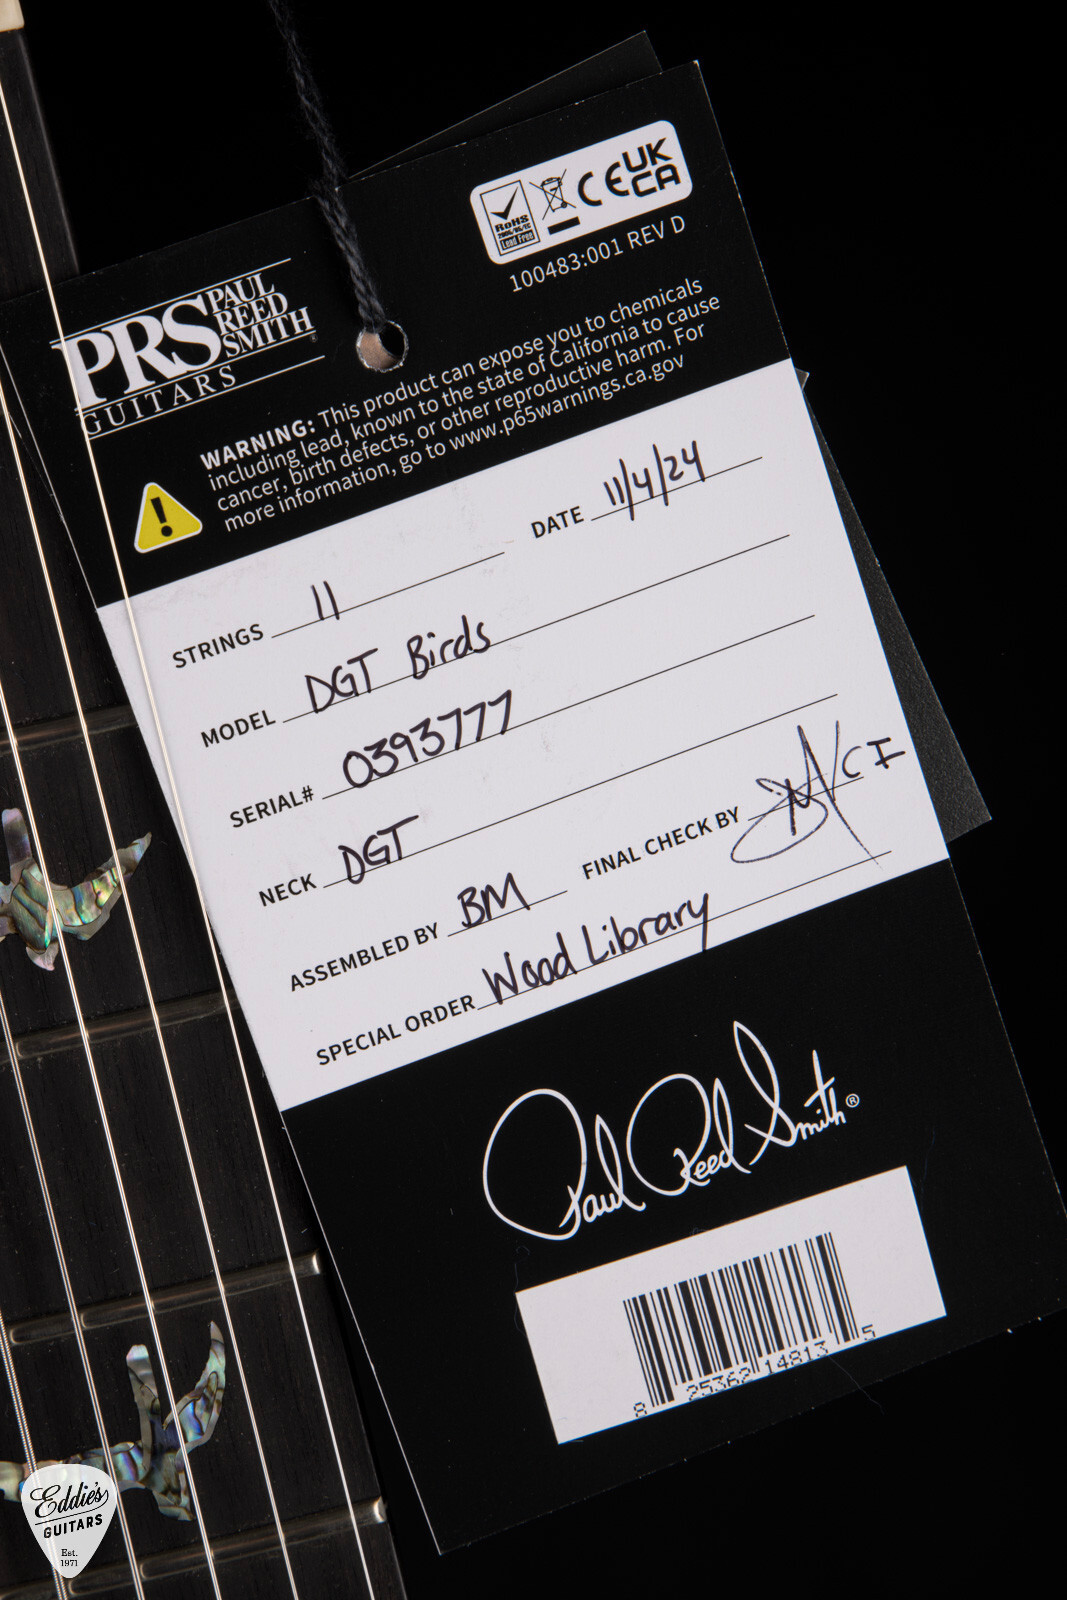 RoHS
2005/95/EC
Lead Free
CE
UK
CA
100483:001 REV D
PRS PAUL
REED
SMITH
GUITARS
WARNING: This product can expose you to chemicals
including lead, known to the state of California to cause
cancer, birth defects, or other reproductive harm. For
more information, go to www.p65warnings.ca.gov
STRINGS 11 DATE 11/4/24
MODEL DGT Birds
SERIAL# 0393777
NECK DGT
ASSEMBLED BY BM FINAL CHECK BY
SPECIAL ORDER Wood Library
Paul Reed Smith®
8 25362 14813 5
Eddie's
GUITARS
Est.
1971